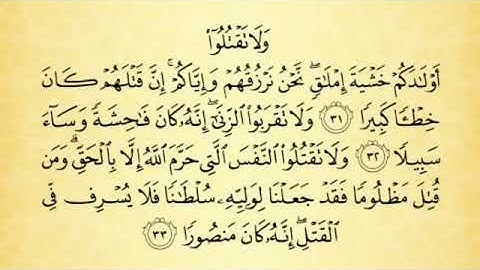 وَلَا تَقْتُلُوٓا۟
أَوْلَٰدَكُمْ خَشْيَةَ إِمْلَٰقٍۢ ۖ نَّحْنُ نَرْزُقُهُمْ وَإِيَّاكُمْ ۚ إِنَّ قَتْلَهُمْ كَانَ
خِطْـًۭٔا كَبِيرًۭا ٣١ وَلَا تَقْرَبُوا۟ ٱلزِّنَىٰٓ ۖ إِنَّهُۥ كَانَ فَٰحِشَةًۭ وَسَآءَ
سَبِيلًۭا ٣٢ وَلَا تَقْتُلُوا۟ ٱلنَّفْسَ ٱلَّتِى حَرَّمَ ٱللَّهُ إِلَّا بِٱلْحَقِّ ۗ وَمَن
قُتِلَ مَظْلُومًۭا فَقَدْ جَعَلْنَا لِوَلِيِّهِۦ سُلْطَٰنًۭا فَلَا يُسْرِف فِّى
ٱلْقَتْلِ ۖ إِنَّهُۥ كَانَ مَنصُورًۭا ٣٣